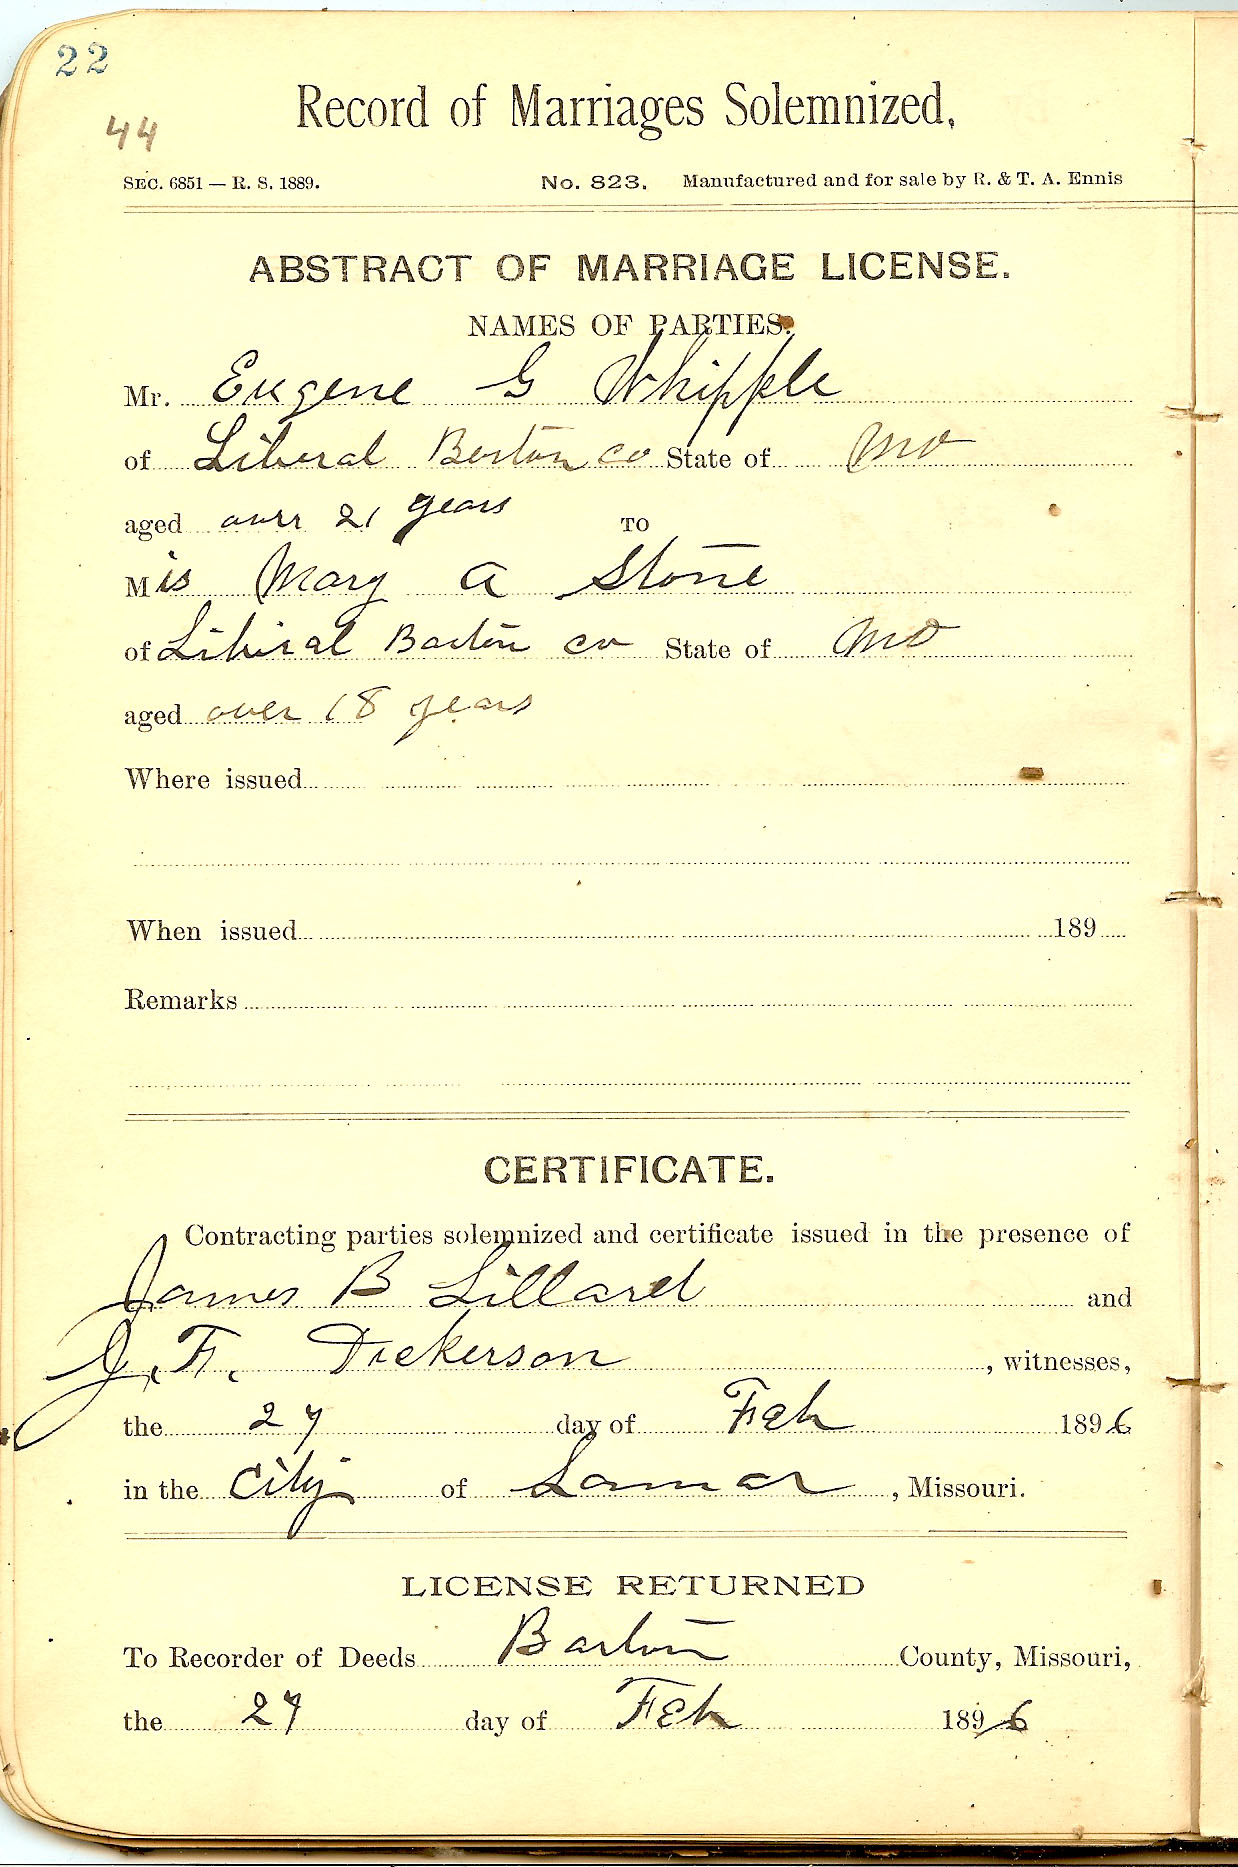 22
44
Record of Marriages Solemnized,
SEC. 6851 — R. S. 1889. No. 823. Manufactured and for sale by R. & T. A. Ennis
ABSTRACT OF MARRIAGE LICENSE.
NAMES OF PARTIES.
Mr. Eugene G Whipple
of Liberal Barton co State of Mo
aged over 21 years TO
Mis Mary A Stone
of Liberal Barton co State of Mo
aged over 18 years
Where issued
When issued 189
Remarks
CERTIFICATE.
Contracting parties solemnized and certificate issued in the presence of
James B Lillard and
J. F. Dickerson, witnesses,
the 27 day of Feb 1896
in the City of Lamar, Missouri.
LICENSE RETURNED
To Recorder of Deeds Barton County, Missouri,
the 27 day of Feb 1896